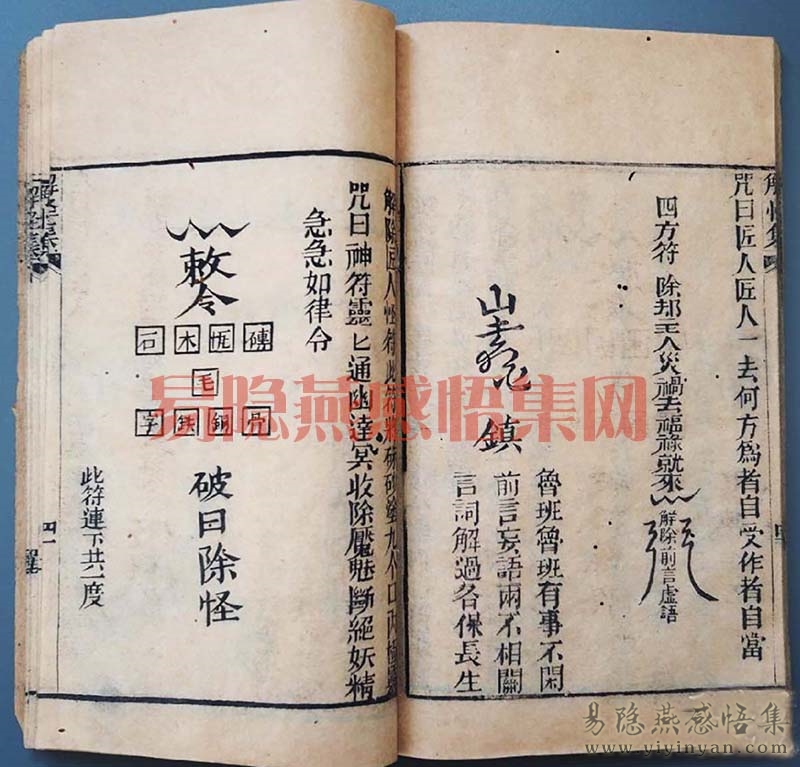 咒曰匠人匠人一去何方爲者自受作者自當
四方符 除却主人災禍去福祿就來
解除前言虛語
鎮
魯班魯班有事不閑
前言妄語兩不相關
言詞解過各保長生
解除匠人怪符此符將硃砂
咒曰神符靈匕通幽達冥收除魘魅斷絕妖精
急急如律令
敕令
石 木 瓦 磚
毛
字 鉄 銅 骨
破曰除怪
此符連下共一度
四一
易隐燕感悟集网
易隐燕感悟集
www.yiyinyan.com